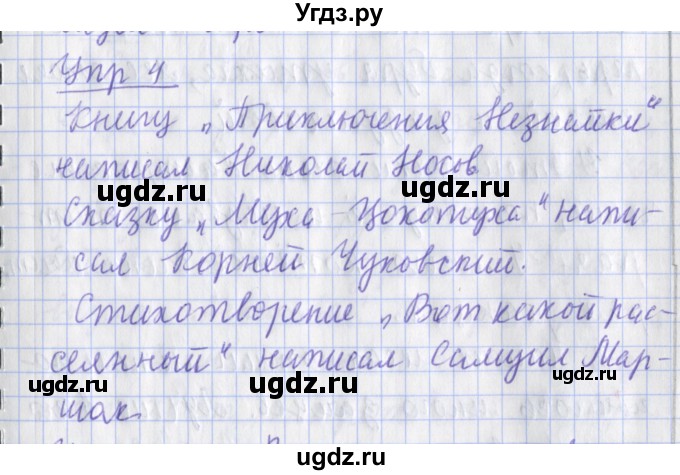 Угдз.ру
Упр 4
Книгу „Приключения Незнайки“
написал Николай Носов
ugdz.ru ugdz.ru
Сказку „Муха-Цокотуха“ напи-
сал Корней Чуковский.
Стихотворение „Вот какой рас-
сеянный“ написал Самуил Мар-
ugdz.ru ugdz.ru ugdz.ru
шак.
ugdz.ru ugdz.ru